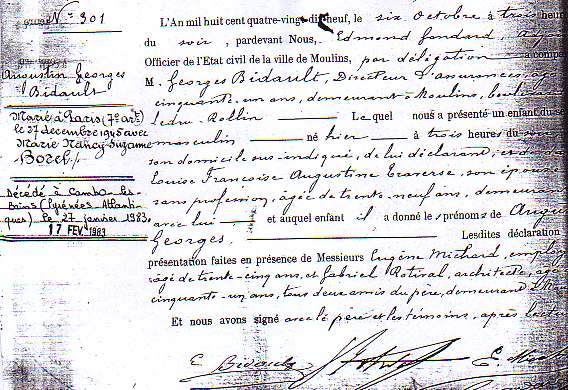 N° 301
Augustin Georges
Bidault
Marié à Paris (7e arr)
le 27 decembre 1945 avec
Marie Nancy Suzanne
Borel
Décédé à Cambo-les-
Bains (Pyrénées Atlanti-
ques) le 27 janvier 1983.
17 FEV. 1983
L'An mil huit cent quatre-vingt-dix-neuf, le six Octobre à trois heur
du soir, pardevant Nous, Edmond Gandard
Officier de l'Etat civil de la ville de Moulins, par délégation a comp
M. Georges Bidault, Directeur d'assurances, agé
cinquante-un ans, demeurant à Moulins,
Ledru-Rollin Lequel nous a présenté un enfant du s
masculin né hier à trois heures du
son domicile sus-indiqué, de lui déclarant, et de
Louise Françoise Augustine Traverse, son épouse
sans profession, agée de trente-neuf ans, demeura
avec lui et auquel enfant il a donné le prénoms de Augus
Georges. Lesdites déclaration
présentation faites en présence de Messieurs Eugène Michard, employ
agé de trente-cinq ans, et Gabriel architecte, agé
cinquante-un ans, tous deux amis du père, demeurant à
Et nous avons signé avec le père et les témoins, après lecture
Bidault